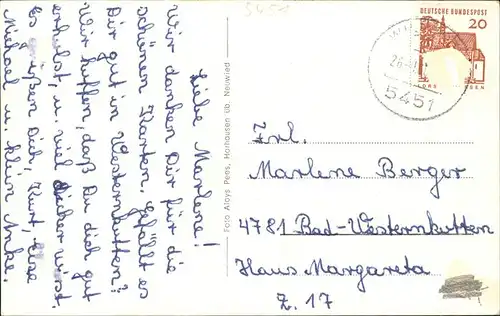 Liebe Marlene!
Wir danken Dir für die
schönen Karten. Gefällt es
Dir gut in Westernkotten?
Wir hoffen, daß Du dich gut
erholst, u. viel dicker wirst.
Es grüßen Dich, Kurt, Else
Michael u. klein Anke.
Foto Aloys Pees, Horhausen üb. Neuwied
DEUTSCHE BUNDESPOST
20
5451
Frl.
Marlene Berger
4781 Bad-Westernkotten
Haus Margareta
Z. 17